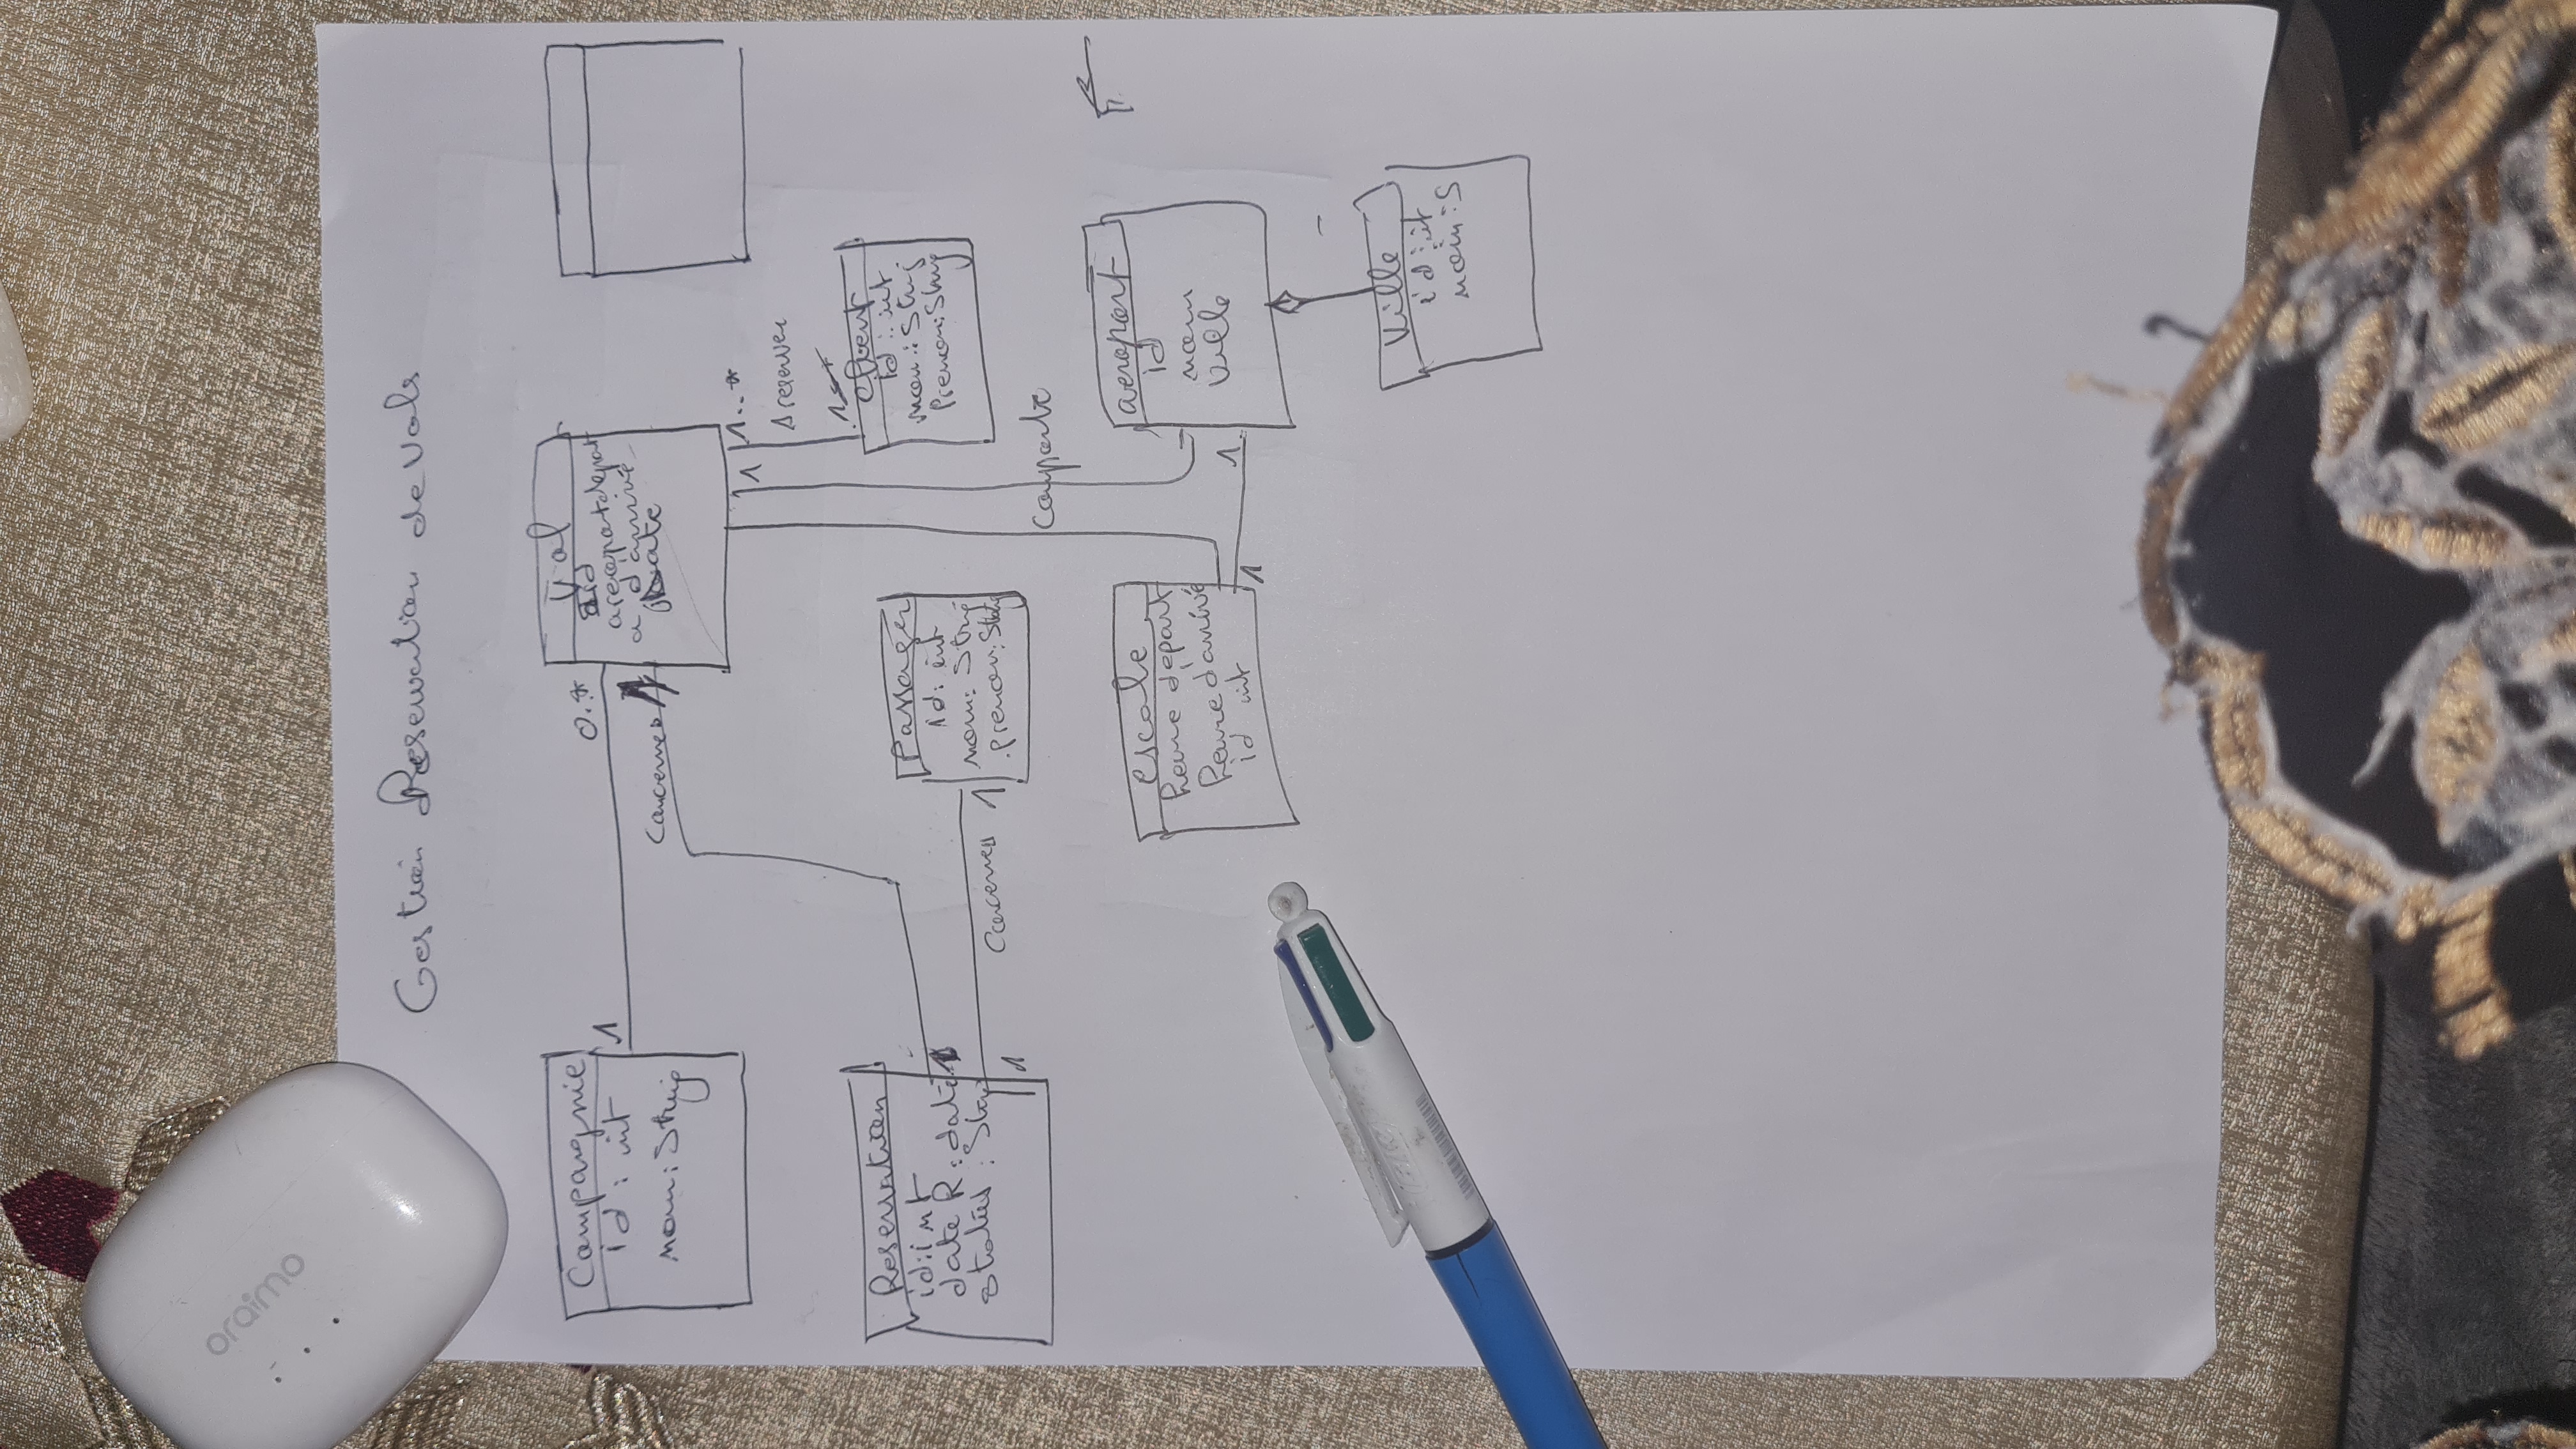 oraimo
Gestion Reservation de Vols
Compargnie
id : int
nom : String
1
0..*
Vol
id
aeroportdepart
a d'arrivé
Date
Concernes
1
1
1..*
1 reserver
1
Client
id : int
nom : String
Prenom : String
Reservation
id : int
date R : date
status : String
1
1
Concernes
1
Passager
id : int
nom : String
prenom : String
Comporte
escale
heure depart
heure d'arrivé
id int
1
1
aeroport
id
nom
Ville
Ville
id : int
nom : S